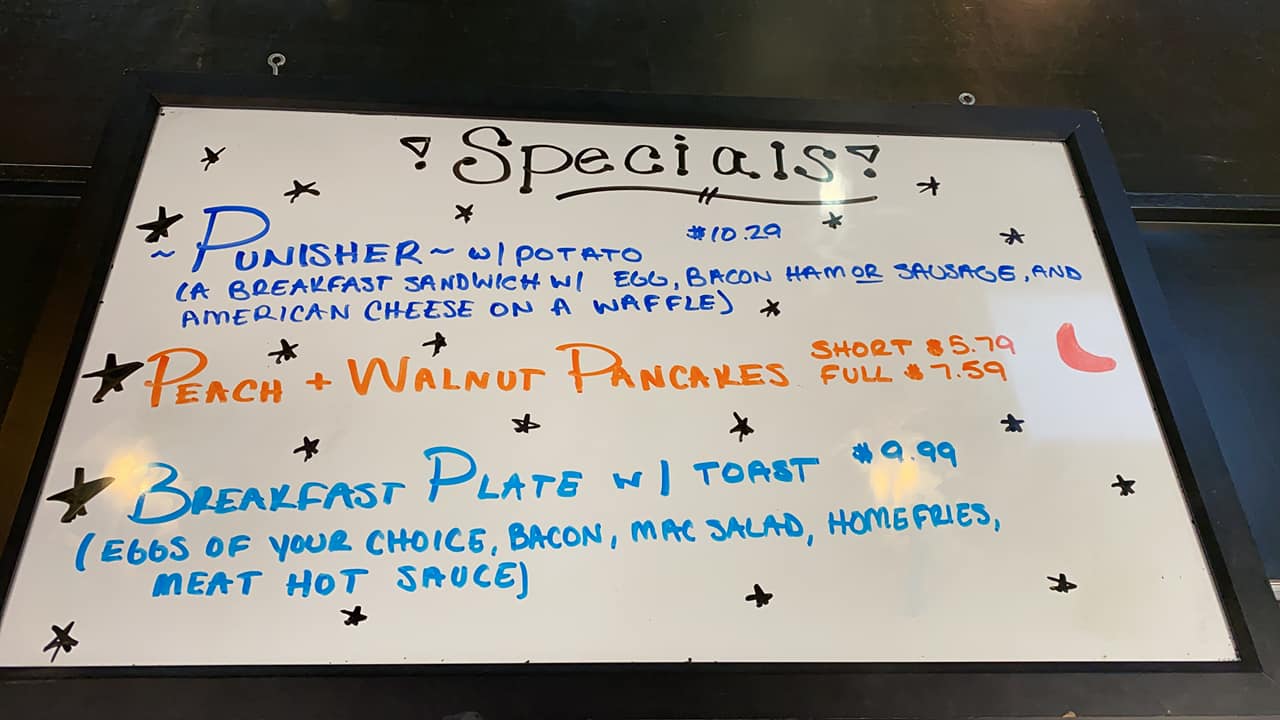 ! Specials !
~ PUNISHER ~ W/ POTATO $10.29
(A BREAKFAST SANDWICH W/ EGG, BACON HAM OR SAUSAGE, AND
AMERICAN CHEESE ON A WAFFLE)
PEACH + WALNUT PANCAKES SHORT $5.79
FULL $7.59
BREAKFAST PLATE W/ TOAST $9.99
(EGGS OF YOUR CHOICE, BACON, MAC SALAD, HOMEFRIES,
MEAT HOT SAUCE)